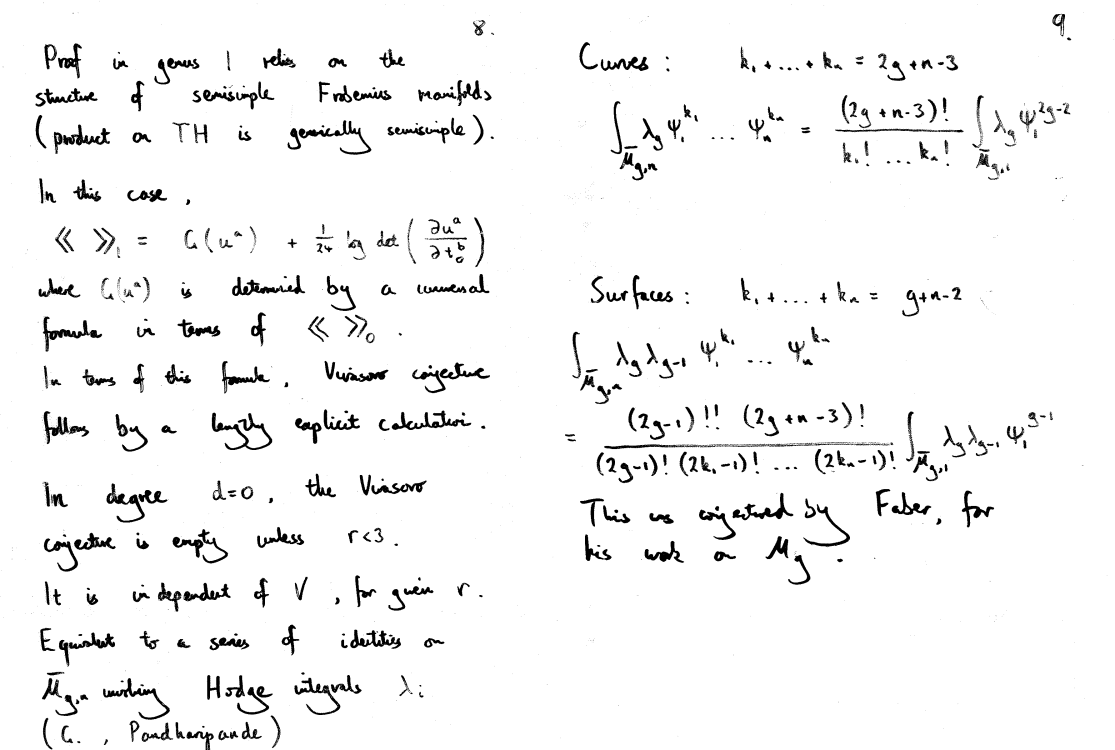 8.
Proof in genus 1 relies on the
structure of semisimple Frobenius manifolds
(product on TH is generically semisimple).
In this case,
≪ ≫₁ = G(uᵃ) + 1/24 log det (∂uᵃ/∂t₀ᵇ)
where G(uᵃ) is determined by a universal
formula in terms of ≪ ≫₀.
In terms of this formula, Virasoro conjecture
follows by a lengthy explicit calculation.
In degree d=0, the Virasoro
conjecture is empty unless r<3.
It is independent of V, for given r.
Equivalent to a series of identities on
M̄_{g,n} involving Hodge integrals λ_i
(G., Pandharipande)
9.
Curves: k₁+...+kₙ = 2g+n-3
∫_{M̄_{g,n}} λ_g ψ₁^{k₁} ... ψₙ^{kₙ} = (2g+n-3)!/(k₁! ... kₙ!) ∫_{M̄_{g,1}} λ_g ψ₁^{2g-2}
Surfaces: k₁+...+kₙ = g+n-2
∫_{M̄_{g,n}} λ_g λ_{g-1} ψ₁^{k₁} ... ψₙ^{kₙ}
= (2g-1)!! (2g+n-3)!/((2g-1)! (2k₁-1)! ... (2kₙ-1)!) ∫_{M̄_{g,1}} λ_g λ_{g-1} ψ₁^{g-1}
This was conjectured by Faber, for
his work on M_g.